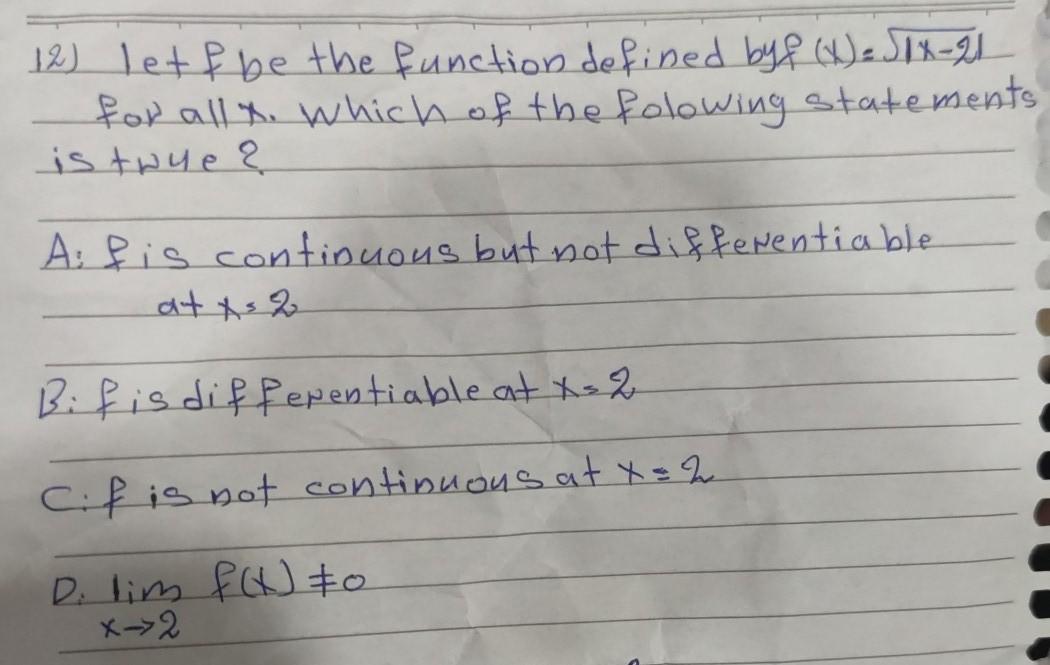 12) let f be the function defined by f(x)=√|x-2|
for all x. Which of the folowing statements
is true?
A: f is continuous but not differentiable
at x=2
B: f is differentiable at x=2
C: f is not continuous at x=2
D. lim f(x) ≠0
x→2